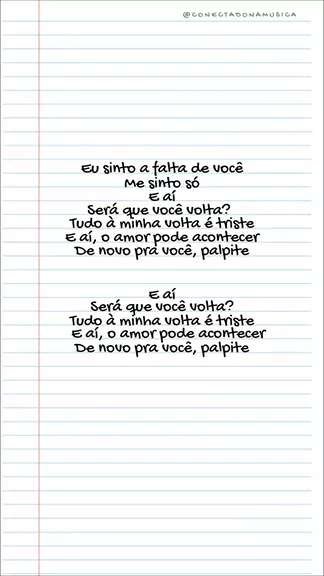 @CONECTADONAMUSICA
Eu sinto a falta de você
Me sinto só
E aí
Será que você volta?
Tudo à minha volta é triste
E aí, o amor pode acontecer
De novo pra você, palpite
E aí
Será que você volta?
Tudo à minha volta é triste
E aí, o amor pode acontecer
De novo pra você, palpite